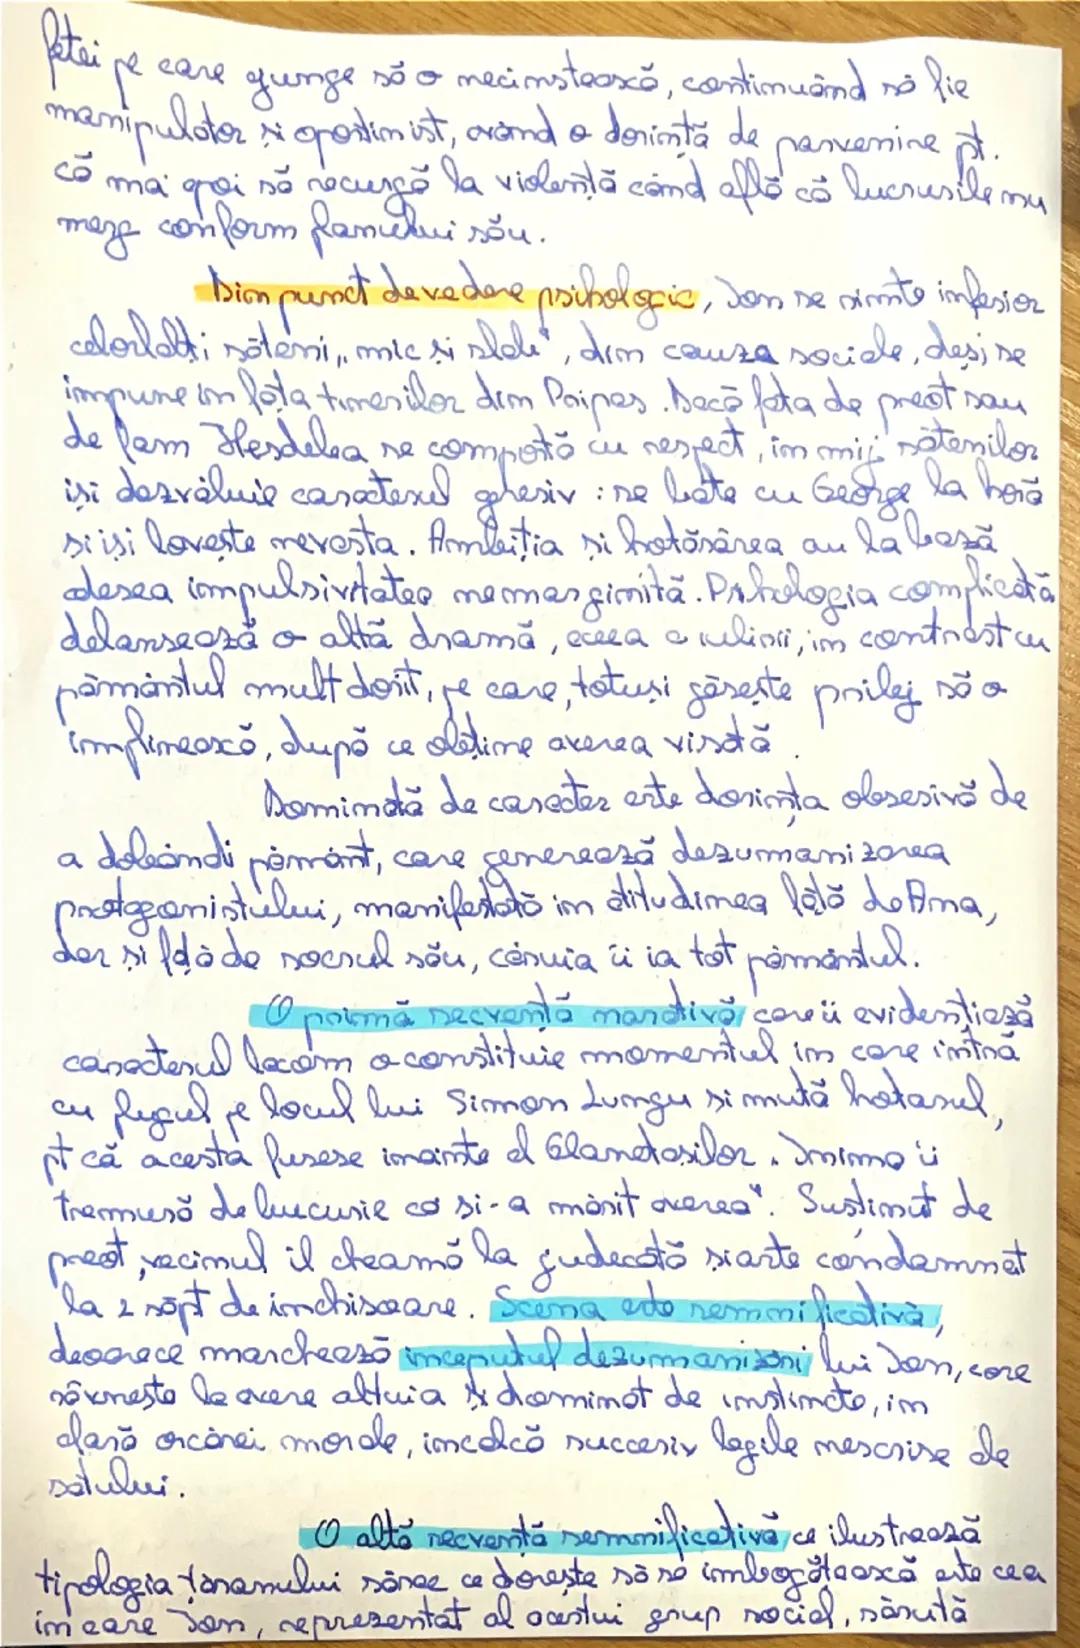 fetei pe care ajunge să o necinstească, continuând să fie
manipulator și oportinist, având o dorință de parvenire pt.
că mai apoi să recurgă la violență când află că lucrurile nu
merg conform planului său.
Din punct de vedere psihologic, Ion se simte inferior
celorlalți săteni „mic și slab”, din cauza sociale, deși se
impune în fața tinerilor din Pripas. Dacă fața de preot sau
de fam Herdelea se comportă cu respect, în mij. sătenilor
își dezvăluie caracterul agresiv: se bate cu George la horă
și își lovește nevasta. Ambiția și hotărârea au la bază
adesea impulsivitatea nemărginită. Psihologia complicată
delansează o altă dramă, aceea a iubirii, în contrast cu
pământul mult dorit, pe care, totuși găsește prilej să o
împlinească, după ce obține averea visată.
Dominată de caracter este dorința obsesivă de
a dobândi pământ, care generează dezumanizarea
protagonistului, manifestată în atitudinea față de Ana,
dar și față de socrul său, căruia îi ia tot pământul.
O primă secvență narativă care îi evidențiază
caracterul lacom o constituie momentul în care intră
cu plugul pe locul lui Simion Lungu și mută hotarul,
pt că acesta fusese înainte al Glanetașilor. „Inima îi
tremura de bucurie că și-a mărit averea”. Susținut de
preot, vecinul îl cheamă la judecată și este condamnat
la 2 săpt de închisoare. Scena este semnificativă,
deoarece marchează începutul dezumanizării lui Ion, care
râvnește la avere altuia și dominat de instincte, în
afară oricărei morale, încalcă succesiv legile nescrise ale
satului.
O altă secvență semnificativă ce ilustrează
tipologia țăranului sărac ce dorește să se îmbogățească este cea
în care Ion, reprezentat al acestui grup social, sărută